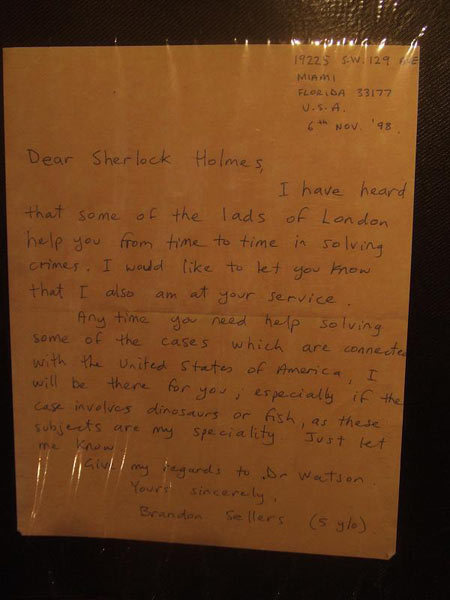 19225 S.W. 129 AVE
MIAMI
FLORIDA 33177
U.S.A.
6th NOV. '98.
Dear Sherlock Holmes,
I have heard
that some of the lads of London
help you from time to time in solving
crimes. I would like to let you know
that I also am at your service.
Any time you need help solving
some of the cases which are connected
with the United States of America, I
will be there for you; especially if the
case involves dinosaurs or fish, as these
subjects are my speciality. Just let
me know.
Give my regards to Dr Watson.
Yours sincerely,
Brandon Sellers (5 y/o).